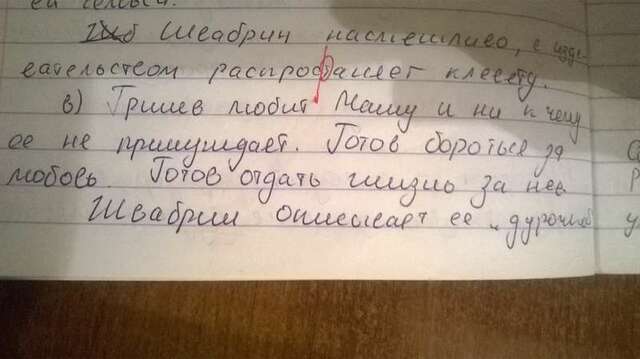 ей семьи.
Швабрин насмешливо, с изде
вательством распространяет клевету.
в) Гринев любит Машу и ни к чему
ее не принуждает. Готов бороться за
любовь. Готов отдать жизнь за нее
Швабрин описывает ее „дурочкой